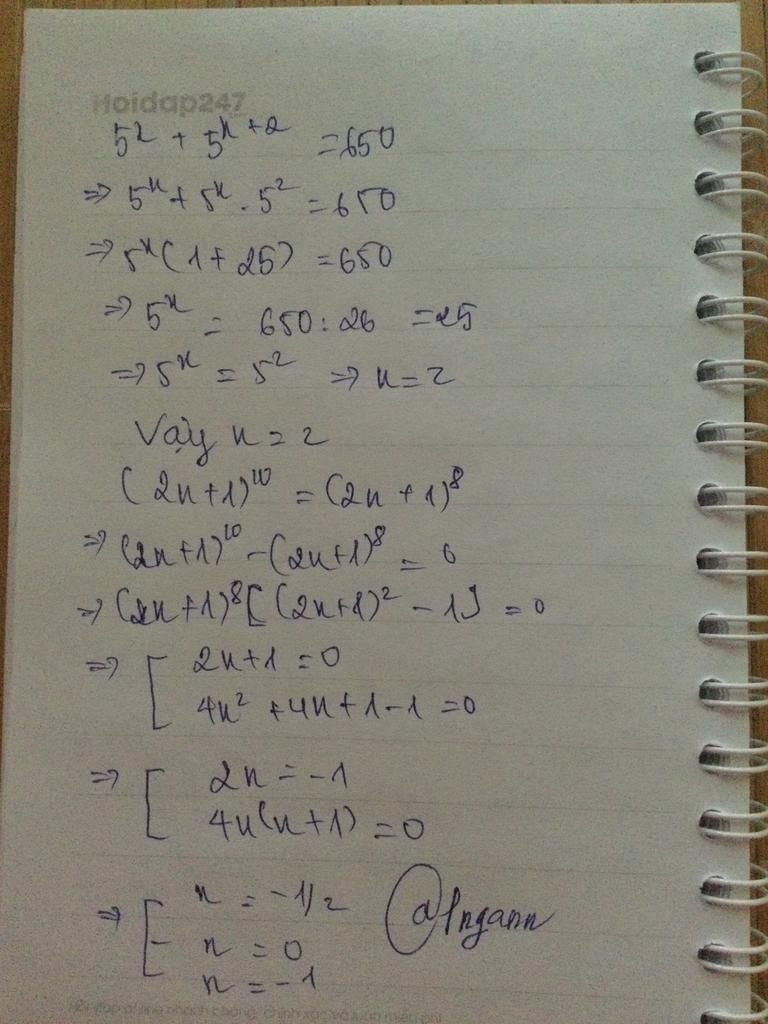 Hoidap247
5^x + 5^{x+2} = 650
=> 5^x + 5^x . 5^2 = 650
=> 5^x (1 + 25) = 650
=> 5^x = 650 : 26 = 25
=> 5^x = 5^2 => x = 2
Vậy x = 2
(2x+1)^{10} = (2x+1)^8
=> (2x+1)^{10} - (2x+1)^8 = 0
=> (2x+1)^8 [(2x+1)^2 - 1] = 0
=> [ 2x+1 = 0
4x^2 + 4x + 1 - 1 = 0
=> [ 2x = -1
4x(x+1) = 0
=> [ x = -1/2 @lngann
x = 0
x = -1
Hỏi đáp online nhanh chóng, chính xác và luôn miễn phí